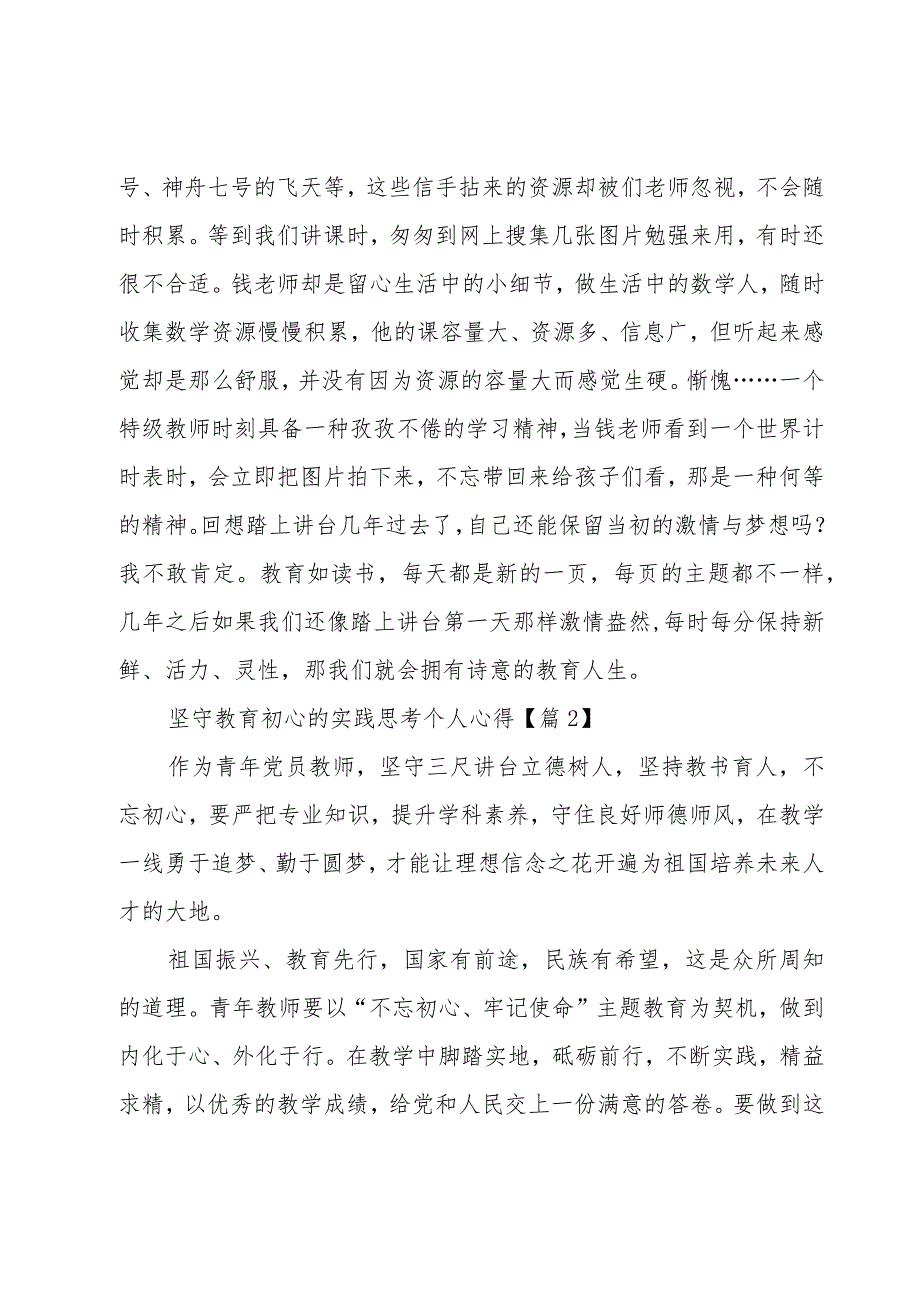 号、神舟七号的飞天等，这些信手拈来的资源却被们老师忽视，不会随
时积累。等到我们讲课时，匆匆到网上搜集几张图片勉强来用，有时还
很不合适。钱老师却是留心生活中的小细节，做生活中的数学人，随时
收集数学资源慢慢积累，他的课容量大、资源多、信息广，但听起来感
觉却是那么舒服，并没有因为资源的容量大而感觉生硬。惭愧……一个
特级教师时刻具备一种孜孜不倦的学习精神，当钱老师看到一个世界计
时表时，会立即把图片拍下来，不忘带回来给孩子们看，那是一种何等
的精神。回想踏上讲台几年过去了，自己还能保留当初的激情与梦想吗？
我不敢肯定。教育如读书，每天都是新的一页，每页的主题都不一样，
几年之后如果我们还像踏上讲台第一天那样激情盎然,每时每分保持新
鲜、活力、灵性，那我们就会拥有诗意的教育人生。
坚守教育初心的实践思考个人心得【篇2】
作为青年党员教师，坚守三尺讲台立德树人，坚持教书育人，不
忘初心，要严把专业知识，提升学科素养，守住良好师德师风，在教学
一线勇于追梦、勤于圆梦，才能让理想信念之花开遍为祖国培养未来人
才的大地。
祖国振兴、教育先行，国家有前途，民族有希望，这是众所周知
的道理。青年教师要以“不忘初心、牢记使命”主题教育为契机，做到
内化于心、外化于行。在教学中脚踏实地，砥砺前行，不断实践，精益
求精，以优秀的教学成绩，给党和人民交上一份满意的答卷。要做到这